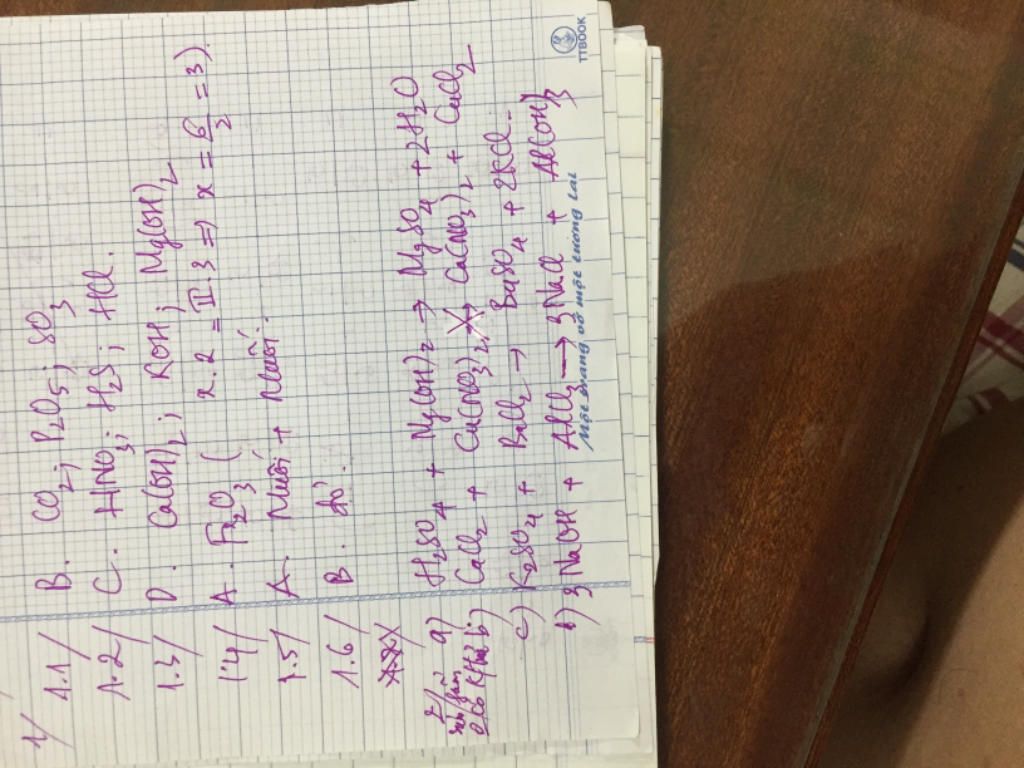 1/
1.1/ B. CO2; P2O5; SO3
1.2/ C. HNO3; H2S; HCl.
1.3/ D. Ca(OH)2; KOH; Mg(OH)2
1.4/ A. Fe2O3 ( x.2 = II.3 => x = 6/2 = 3).
1.5/ A. Muối + Muối.
1.6/ B. đỏ.
2/ a) H2SO4 + Mg(OH)2 → MgSO4 + 2H2O
b) CaCl2 + Cu(NO3)2 → Ca(NO3)2 + CuCl2
c) K2SO4 + BaCl2 → BaSO4 + 2KCl.
b) 3NaOH + AlCl3 → 3NaCl + Al(OH)3
Một trang vở một tương lai
TTBOOK